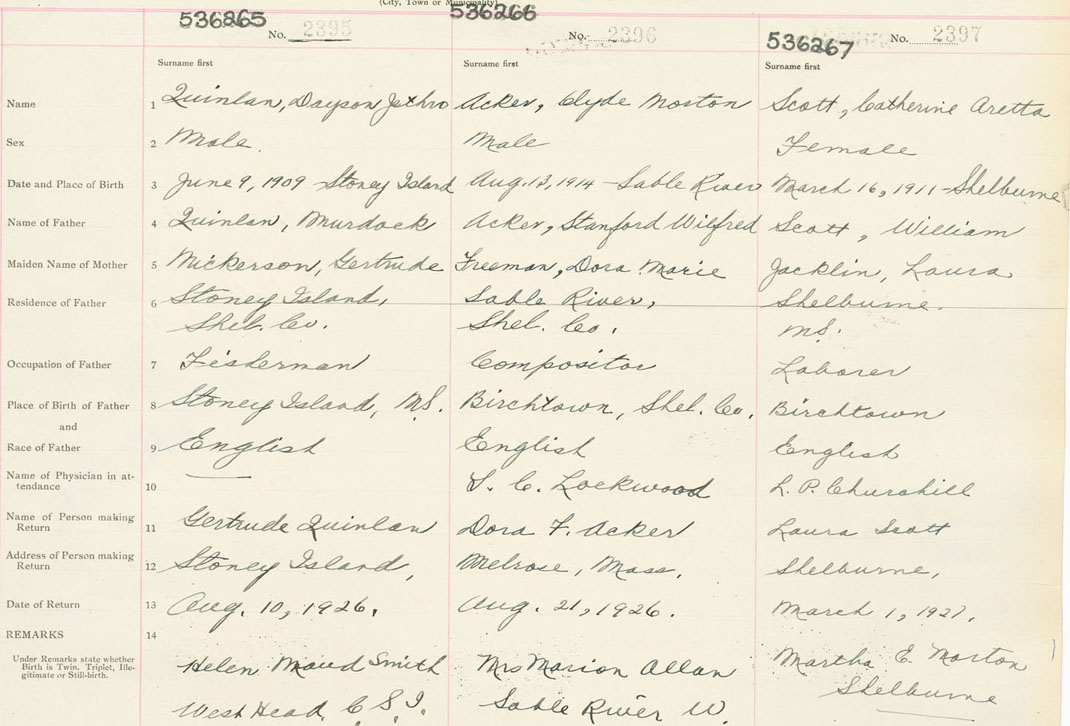 (City, Town or Municipality)
536265 No. 2395
536266 No. 2396
536267 No. 2397
Surname first Surname first Surname first
Name 1 Quinlan, Dayson Jethro Acker, Clyde Morton Scott, Catherine Aretta
Sex 2 Male. Male Female
Date and Place of Birth 3 June 9, 1909 - Stoney Island Aug. 13, 1914 - Sable River March 16, 1911 - Shelburne
Name of Father 4 Quinlan, Murdock Acker, Stanford Wilfred Scott, William
Maiden Name of Mother 5 Nickerson, Gertrude Freeman, Dora Marie Jacklin, Laura
Residence of Father 6 Stoney Island, Sable River, Shelburne.
Shel. Co. Shel. Co. N.S.
Occupation of Father 7 Fisherman Compositor Laborer
Place of Birth of Father 8 Stoney Island, N.S. Birchtown, Shel. Co. Birchtown
and
Race of Father 9 English English English
Name of Physician in at-
tendance 10 S. C. Lockwood L. P. Churchill
Name of Person making
Return 11 Gertrude Quinlan Dora F. Acker Laura Scott
Address of Person making
Return 12 Stoney Island, Melrose, Mass. Shelburne,
Date of Return 13 Aug. 10, 1926. Aug. 21, 1926. March 1, 1927.
REMARKS 14
Under Remarks state whether
Birth is Twin, Triplet, Ille-
gitimate or Still-birth.
Helen Maud Smith Mrs Marion Allan Martha E. Morton
West Head, C. S. I. Sable River W. Shelburne